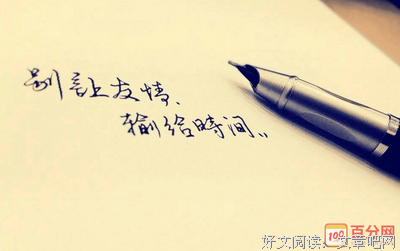 别让友情、
输给时间。
100 百分网
好文阅读：文章吧网